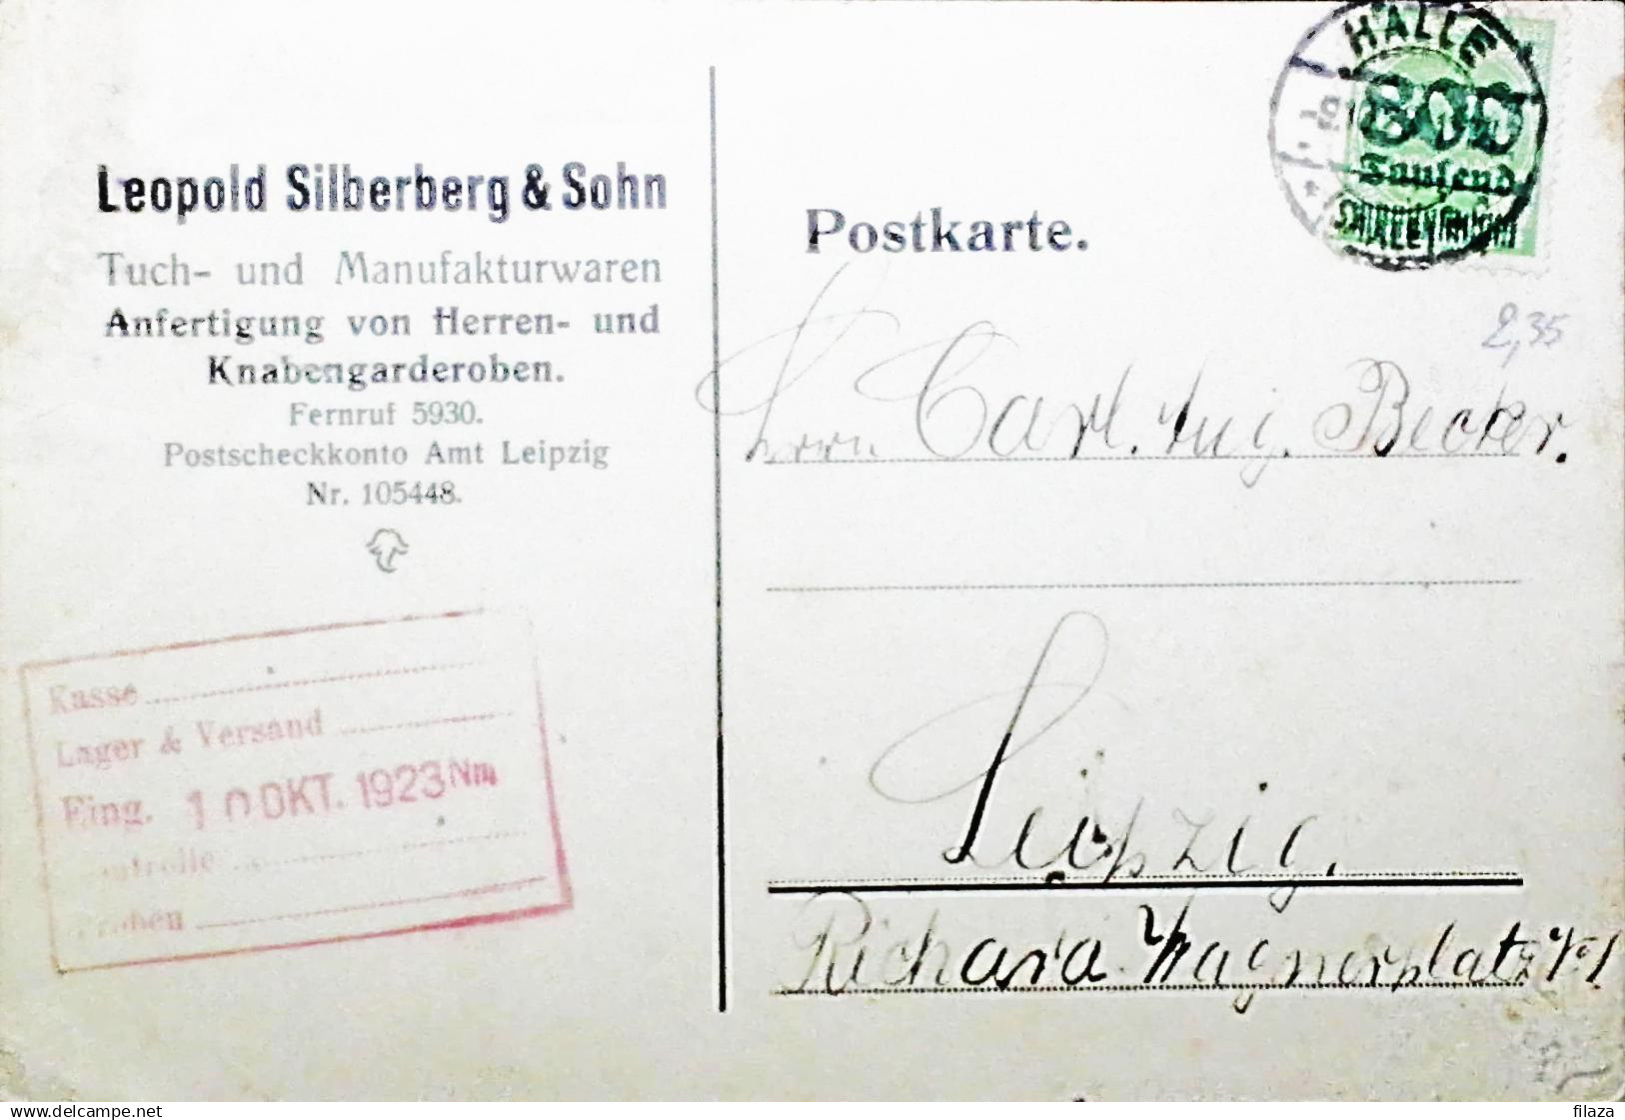 Leopold Silberberg & Sohn
Tuch- und Manufakturwaren
Anfertigung von Herren- und
Knabengarderoben.
Fernruf 5930.
Postscheckkonto Amt Leipzig
Nr. 105448.
Kasse
Lager & Versand
Eing. 10 OKT. 1923 Nm
ontrolle
Proben
HALLE
800
Tausend
Postkarte.
2,35
Herrn Carl. Aug. Becker.
Leipzig.
Richard Wagnerplatz
delcampe.net
filaza